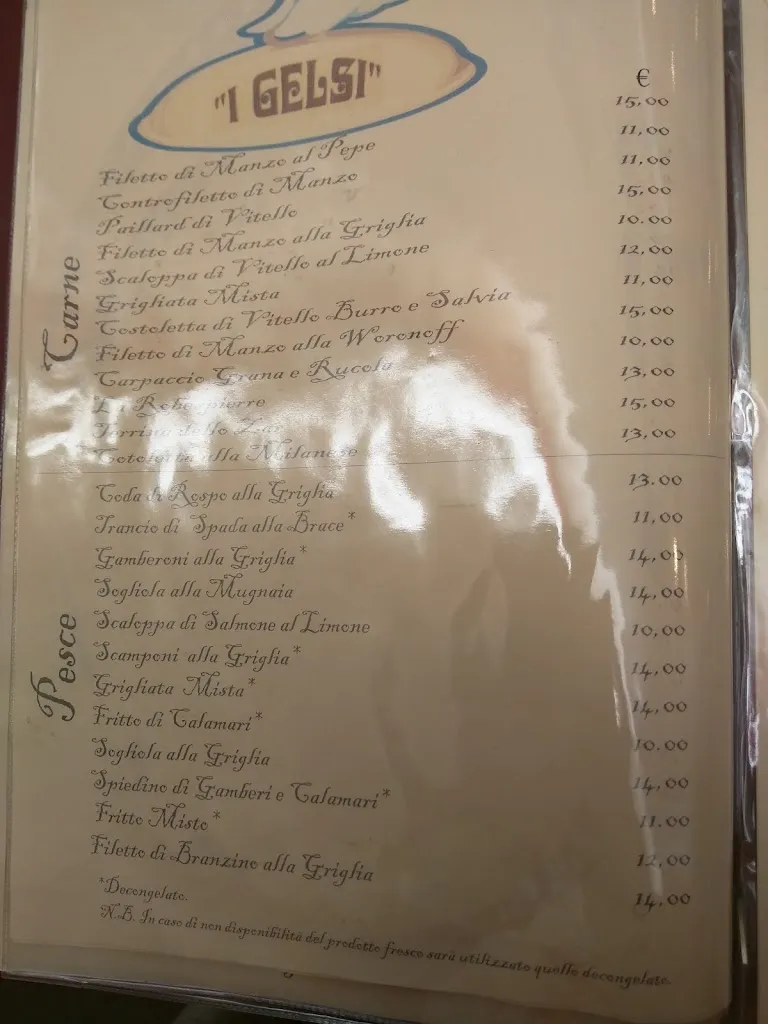 "I GELSI"
€
Carne
Filetto di Manzo al Pepe 15,00
Controfiletto di Manzo 11,00
Paillard di Vitello 11,00
Filetto di Manzo alla Griglia 15,00
Scaloppa di Vitello al Limone 10.00
Grigliata Mista 12,00
Costoletta di Vitello Burro e Salvia 11,00
Filetto di Manzo alla Woronoff 15,00
Carpaccio Grana e Rucola 10,00
Robespierre 13,00
dello 15,00
Cotoletta alla Milanese 13,00
Pesce
Coda di Rospo alla Griglia 13.00
Trancio di Spada alla Brace* 11,00
Gamberoni alla Griglia* 14,00
Sogliola alla Mugnaia 14,00
Scaloppa di Salmone al Limone 10,00
Scamponi alla Griglia* 14,00
Grigliata Mista* 14,00
Fritto di Calamari* 10.00
Sogliola alla Griglia 14,00
Spiedino di Gamberi e Calamari* 11.00
Fritto Misto* 12,00
Filetto di Branzino alla Griglia 14,00
*Decongelato.
N.B. In caso di non disponibilità del prodotto fresco sarà utilizzato quello decongelato.